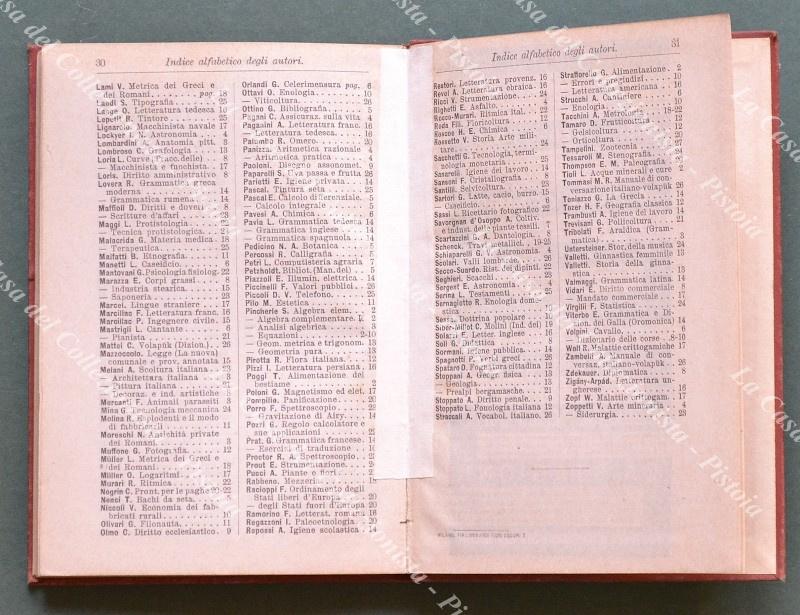 30
Indice alfabetico degli autori.
Lami V. Metrica dei Greci e
dei Romani . . . . pag. 18
Landi S. Tipografia . . . 25
Lange O. Letteratura tedesca 10
Lepetit R. Tintore . . . 25
Lignarolo. Macchinista navale 17
Lockyer I. N. Astronomia . 4
Lombardini A. Anatomia pitt. 3
Lombroso C. Grafologia . . 13
Loria L. Curve (Tracc. delle) . 8
— Macchinista e fuochista . 17
Loris. Diritto amministrativo 8
Lovera R. Grammatica greca
moderna . . . 14
— Grammatica rumena . . 14
Maffioli D. Diritti e doveri . 8
— Scritture d'affari . . 23
Maggi L. Protistologia . .
— Tecnica protistologica .
Malacrida G. Materia medica . 18
— Terapeutica.
Malfatti B. Etnografia . . 11
Manetti L. Caseificio . . 6
Mantovani G. Psicologia fisiolog. 22
Marazza E. Corpi grassi . . 8
— Industria stearica. . . 15
— Saponeria . . . 23
Marcel. Lingue straniere . . 17
Marcillac F. Letteratura franc. 16
Marcillac P. Ingegnere civile. 15
Mastrigli L. Cantante . . 6
— Pianista . . . 21
Mattei C. Volapük (Dizion.) . 26
Mazzoccolo. Legge (La nuova)
comunale e prov., annotata 15
Melani A. Scoltura italiana . 23
— Architettura italiana . . 3
— Pittura italiana . . . 21
— Decoraz. e ind. artistiche 8
Mercanti F. Animali parassiti 3
Mina G. Tecnologia meccanica 24
Molina R. Esplodenti e il modo
di fabbricarli . . . 11
Moreschi N. Antichità private
dei Romani . . . 3
Muffone G. Fotografia . . 12
Müller L. Metrica dei Greci e
dei Romani. . . . 18
Müller O. Logaritmi . . 17
Murari R. Ritmica . . . 22
Negrin C. Pront. per le paghe 20-22
Nenci T. Bachi da seta . . 5
Niccoli V. Economia dei fab-
bricati rurali . . . 10
Olivari G. Filonauta . . 11
Olmo C. Diritto ecclesiastico . 9
Orlandi G. Celerimensura pag. 6
Ottavi O. Enologia . . . 10
— Viticoltura . . . 26
Ottino G. Bibliografia . . 5
Pagani C. Assicuraz. sulla vita 4
Paganini A. Letteratura franc. 16
— Letteratura tedesca . . 16
Palumbo R. Omero . . . 20
Panizza. Aritmetica razionale 4
— Aritmetica pratica . . 4
Paoloni. Disegno assonomet. 9
Paparelli S. Uva passa e frutta 26
Parietti E. Igiene privata . 14
Pascal. Tintura seta . . 25
Pascal E. Calcolo differenziale. 5
— Calcolo integrale . . . 6
Pavesi A. Chimica . . . 6
Pavia L. Grammatica tedesca 14
— Grammatica inglese . . 14
— Grammatica spagnuola . 14
Pedicino N. A. Botanica . . 5
Percossi R. Calligrafia . . 5
Petri L. Computisteria agraria 7
Petzholdt. Bibliot. (Man. del) . 5
Piazzoli E. Illumin. elettrica . 14
Piccinelli F. Valori pubblici . 26
Piccoli D. V. Telefono . . 25
Pilo M. Estetica . . . 11
Pincherle S. Algebra elem.
— Algebra complementare.
— Analisi algebrica . . 3
— Equazioni . . . 2-10
— Geom. metrica e trigonom. 13
— Geometria pura . . . 13
Pirotta R. Flora italiana . . 12
Pizzi I. Letteratura persiana . 16
Poggi T. Alimentazione del
bestiame . . . 2
Poloni G. Magnetismo ed elet. 17
Pompilio. Panificazione . . 20
Porro F. Spettroscopio . .
— Gravitazione di Airy. . 14
Pozzi G. Regolo calcolatore e
sue applicazioni . . . 22
Prat. G. Grammatica francese. 14
— Esercizi di traduzione . . 10
Proctor R. A. Spettroscopio. .
Prout E. Strumentazione. .
Pucci A. Piante e fiori . . 21
Rabbeno. Mezzeria . . . 18
Racioppi F. Ordinamento degli
Stati liberi d'Europa . . 20
— degli Stati fuori d'Europa 20
Ramorino F. Letterat. romana 16
Regazzoni I. Paleoetnologia . 20
Repossi A. Igiene scolastica . 14
Indice alfabetico degli autori.
31
Restori. Letteratura provenz. 16
Revel A. Letteratura ebraica . 16
Ricci V. Strumentazione . . 24
Righetti E. Asfalto. . . 4
Rocco-Murari. Ritmica ital. . 22
Roda Flli. Floricoltura . . 12
Roscoe H. E. Chimica . . 6
Rossetto V. Storia Arte mili-
tare . . . 24
Sacchetti G. Tecnologia, termi-
nologia monetaria . . 25
Sanarelli. Igiene del lavoro . 14
Sansoni F. Cristallografia . . 8
Santilli. Selvicoltura . . . 23
Sartori G. Latte, cacio, burro . 15
— Caseificio. . . . 6
Sassi L. Ricettario fotografico 22
Savorgnan d'Osoppo A. Coltiv.
e indust. delle piante tessili. 7
Scartazzini G. A. Dantologia. 8
Schenck. Trav. metallici . 19-24
Schiaparelli G. V. Astronomia. 4
Scolari. Valli lombarde . . 26
Secco-Suardo. Rist. dei dipinti. 22
Seghieri. Scacchi . . . 23
Sergent E. Astronomia . . 4
Serina L. Testamenti. . . 25
Sernagiotto R. Enologia dome-
stica . . . 10
Sessa. Dottrina popolare .
Siber-Millot C. Molini (Ind. dei) 19
Solazzi E. Letter. inglese . . 16
Soli G. Didattica . . . 8
Sormani. Igiene pubblica . . 14
Spagnotti P. Verbi greci . . 26
Spataro D. Fognatura cittadina 12
Stoppani A. Geografia fisica .
— Geologia . . . 13
— Prealpi bergamasche. . 21
Stoppato A. Diritto penale. . 9
Stoppato L. Fonologia italiana 12
Straccali A. Vocabol. italiano. 26
Strafforello G. Alimentazione . 2
— Errori e pregiudizi . . 10
— Letteratura americana . 16
Strucchi A. Cantiniere . . 6
— Enologia. . . . 10
Tacchini A. Metrologia . 18-22
Tamaro D. Frutticoltura . . 12
— Gelsicoltura . . .
— Orticoltura . . .
Tampelini. Zootecnia . . . 27
Tessaroli M. Stenografia . . 24
Thompson E. M. Paleografia . 20
Tioli L. Acque minerali e cure 2
Tommasi M. R. Manuale di con-
versazione italiano-volapük 26
Toniazzo G. La Grecia . . 14
Tozer H. F. Geografia classica 13
Trambusti A. Igiene del lavoro 14
Trevisani G. Pollicoltura . .
Tribolati F. Araldica (Gram-
matica) . . . 3
Untersteiner. Stor. della musica 24
Valletti. Ginnastica femminile 13
Valletti. Storia della ginna-
stica . . .
Valmaggi. Grammatica latina. 14
Vidari E. Diritto commerciale 8
— Mandato commerciale . . 17
Virgilii F. Statistica . . 24
Viterbo E. Grammatica e Di-
zion. dei Galla (Oromonica) 14
Volpini. Cavallo . . . 6
— Dizionario delle corse . . 8-10
Wolf R. Malattie crittogamiche 17
Zambelli A. Manuale di con-
versaz. italiano-volapük . 26
Zdekauer. Diplomatica . . 8
Zigány-Árpád. Letteratura un-
gherese . . . 16
Zopf W. Malattie crittogam. . 17
Zoppetti V. Arte mineraria . 4
— Siderurgia. . . . 23
La Casa del Collezionista - Pistoia